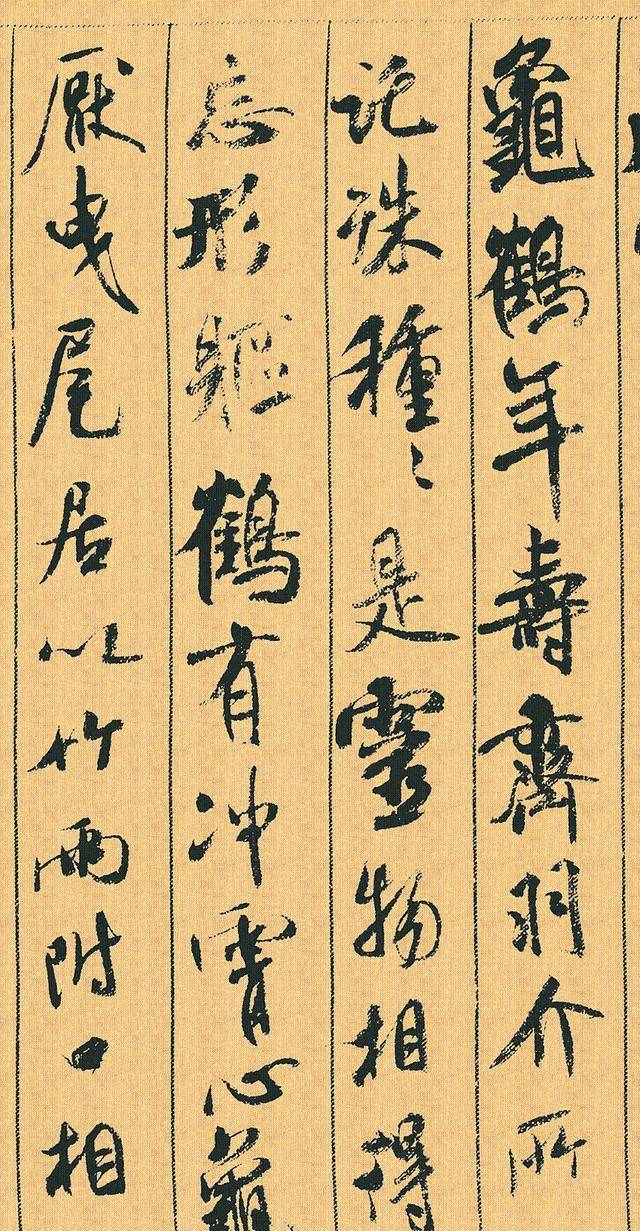 龜鶴年壽齊羽介所
託殊種〻是靈物相得
忘形軀鶴有冲霄心龜
厭曳尾居以竹兩附口相